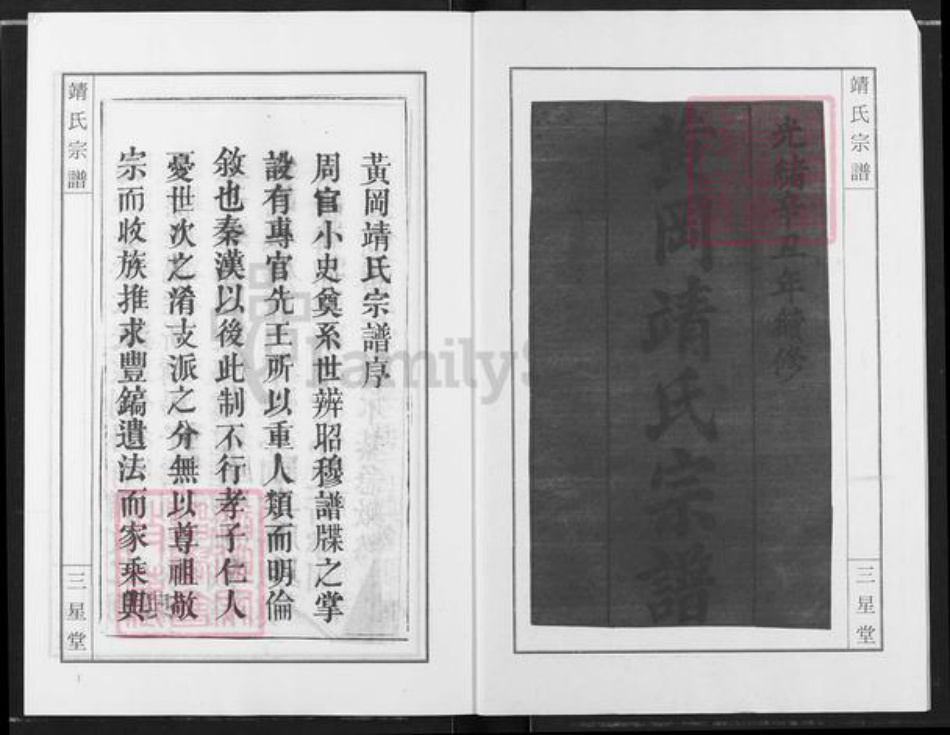 靖氏宗譜
三星堂
光緒辛丑年續修
黃岡靖氏宗譜
黃岡靖氏宗譜序
周官小史奠系世辨昭穆譜牒之掌
設有專官先王所以重人類而明倫
敘也秦漢以後此制不行孝子仁人
憂世次之淆支派之分無以尊祖敬
宗而收族推求豐鎬遺法而家乘興
靖氏宗譜
三星堂